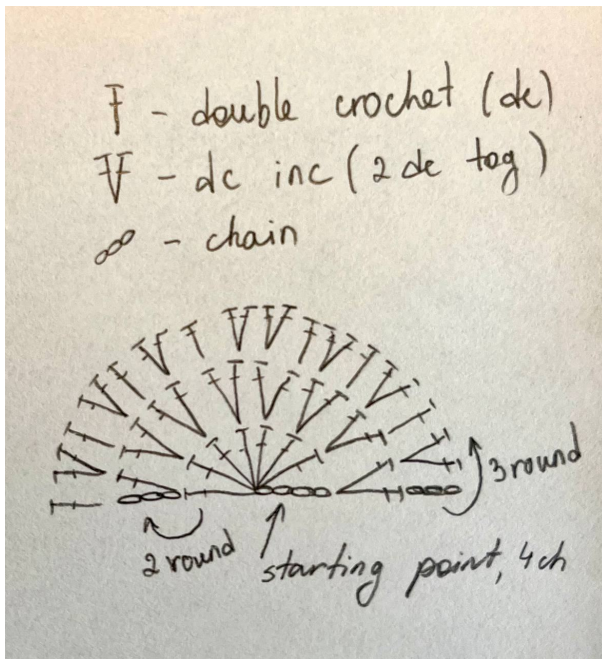 - double crochet (dc)
- dc inc (2 dc tog)
- chain
3 round
2 round
starting point, 4 ch